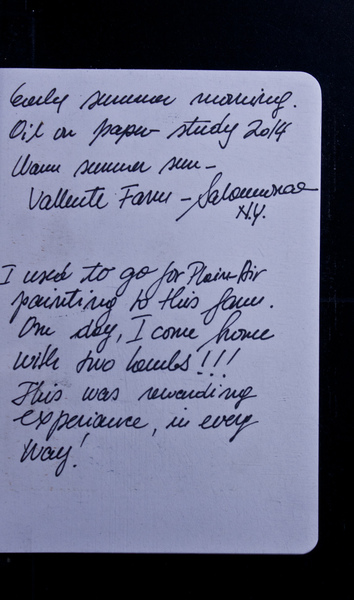 Early summer morning.
Oil on paper study 2014
Warm summer sun -
Vallente Farm -
N.Y.
I used to go for Plain-Air
painting to this farm.
One day, I come home
with two lambs!!!
This was rewarding
experiance, in every
way!